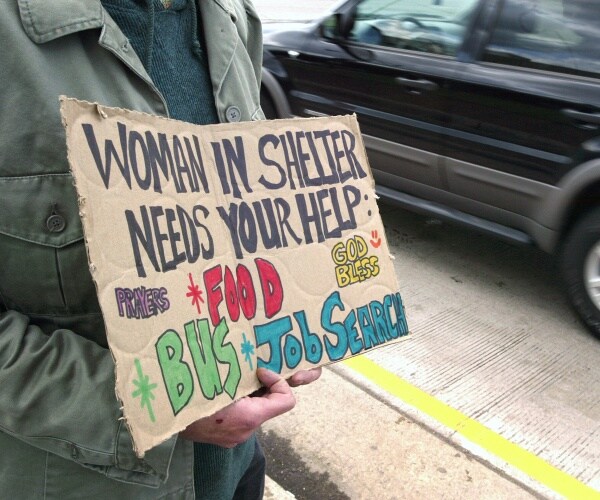 WOMAN IN SHELTER
NEEDS YOUR HELP:
PRAYERS * FOOD GOD BLESS
* BUS * JOB SEARCH